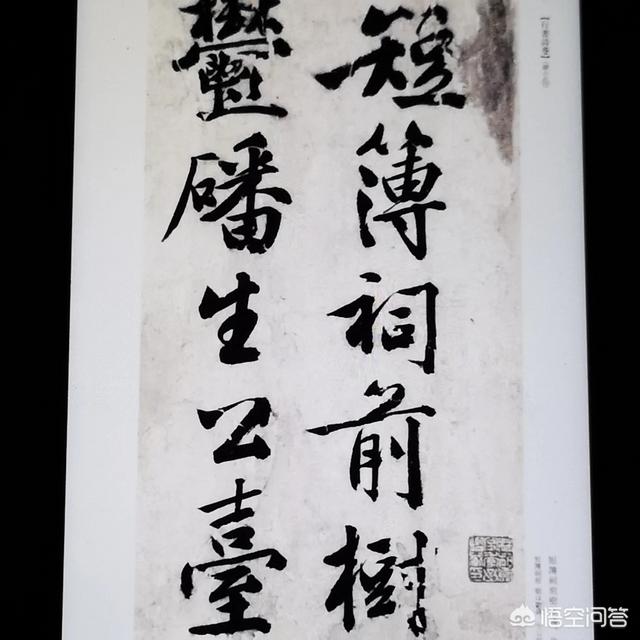 短簿祠前樹
鬱磻生公臺
悟空问答